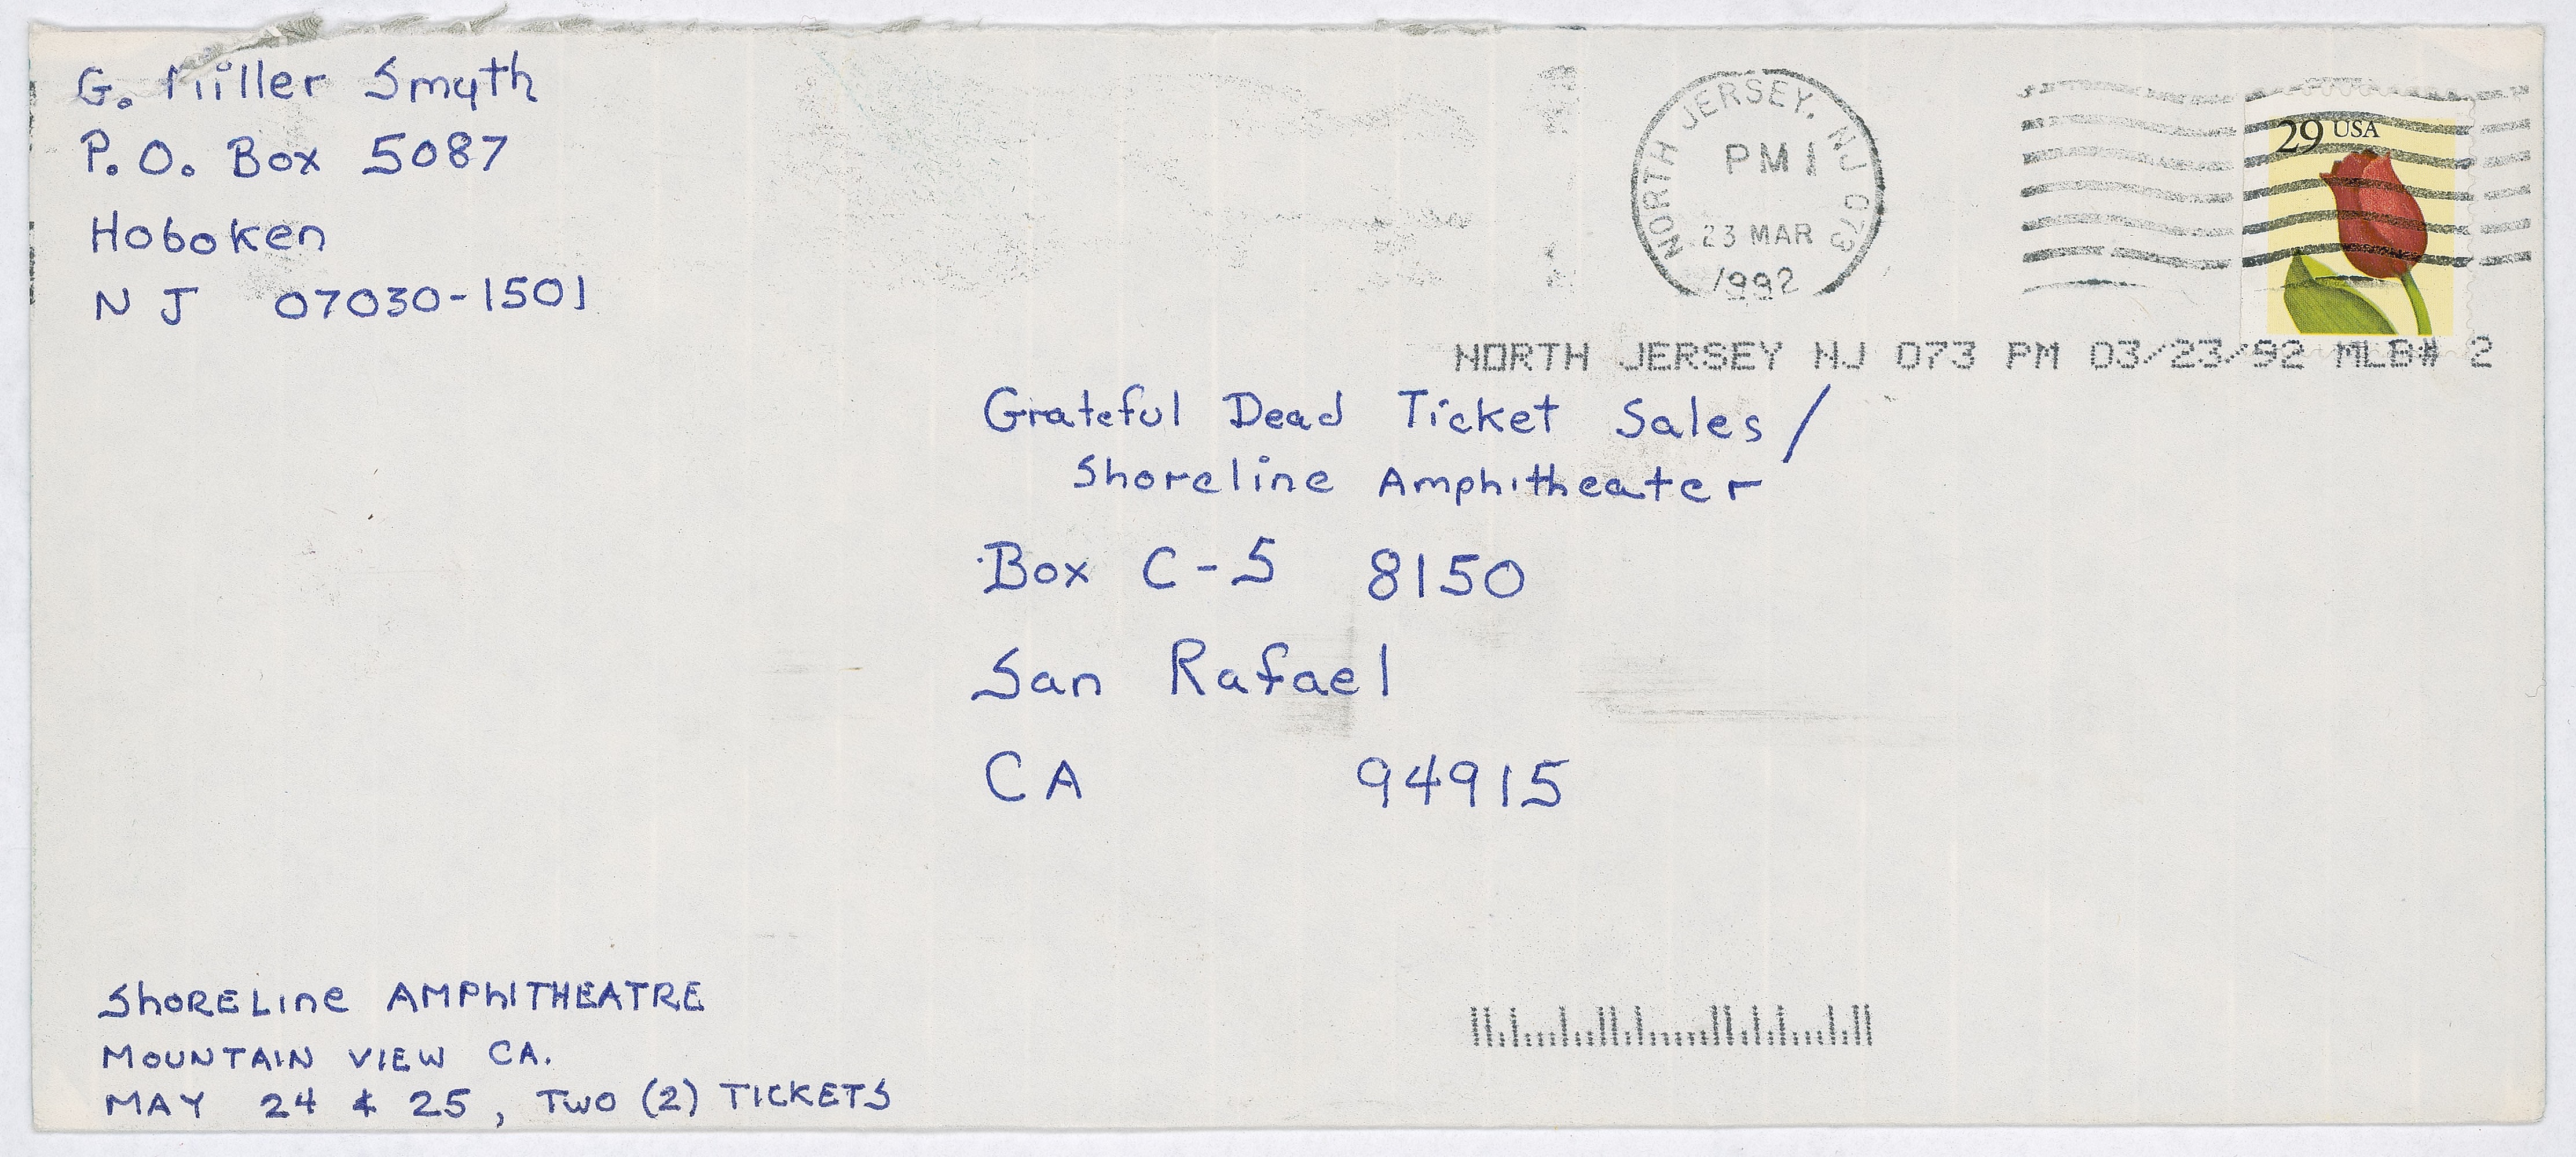 G. Miller Smyth
P.O. Box 5087
Hoboken
NJ 07030-1501
NORTH JERSEY, NJ 073
PM 1
23 MAR
1992
29 USA
NORTH JERSEY NJ 073 PM 03/23/92 MLB# 2
Grateful Dead Ticket Sales/
Shoreline Amphitheater
Box C-S 8150
San Rafael
CA 94915
ShORELine AMPhITHEATRE
MOUNTAIN VIEW CA.
MAY 24 & 25, TWO (2) TICKETS